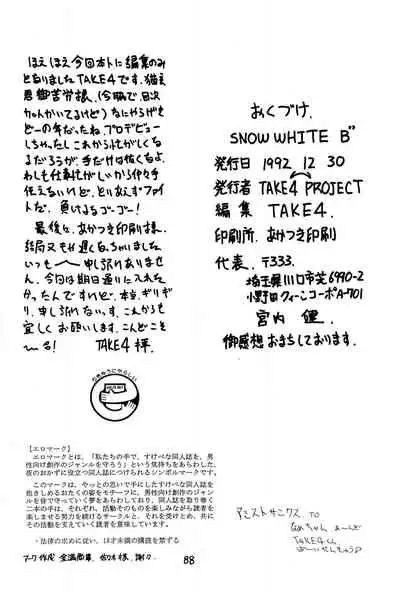 ほえほえ今回本トに編集のみ
となりましたTAKE4です。猫玉
君御苦労様。(今隣で、目次
カットかいてるけど)なにやかやで
どーの年だったね。プロデビュー
しちゃったし これから忙がしくな
るだろうが、手だけは抜くなよ。
わしも仕事忙がしいから何々手
伝えないけど、とりあえずファイ
トだ。負けるなゴーゴー!
最後に、あかつき印刷様、
結局又もや遅くなっちゃいました。
いっも〜申し訳ありませ
ん。今回は期日通りに入れた
かったんですけれど、本当、ギリギ
リ。申し訳ないっす。これからも
宜しくお願いします。こんどこそ
〜る! TAKE4 拝.
おくづけ.
SNOW WHITE B"
発行日 1992. 12. 30
発行者 TAKE4 PROJECT
編集 TAKE4.
印刷所. あかつき印刷
代表. 〒333.
埼玉県川口市芝6990-2
小野田クィーンコーポA-701
宮内 健.
御感想おまちしております.
【エロマーク】
エロマークとは、「私たちの手で、すけべな同人誌を、男
性向け創作のジャンルを守ろう」という気持ちをあらわした、
夜のおかずに役立つ同人誌につけられるシンボルマークです。
このマークは、やっとの思いで手にしたすけべな同人誌を
抱きしめるおたくの姿をモチーフに、男性向け創作のジャン
ルを皆で守っていく夢をあらわしており、同人誌を取り巻く
二本の手は、それぞれ、活動そのものを楽しみながら読者を
楽しませる努力を続けるサークルと、それを受けとめ、共に
その活動を支えていく読者を意味しています。
・法律の求めに従い、18才未満の購読を禁ずる
アシストサンクス TO
なめちゃん あーんど
TAKEくん
88